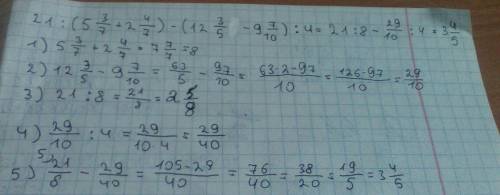 21 : (5 3/7 + 2 4/7) - (12 3/5 - 9 7/10) : 4 = 21 : 8 - 29/10 : 4 = 3 4/5
1) 5 3/7 + 2 4/7 = 7 7/7 = 8
2) 12 3/5 - 9 7/10 = 63/5 - 97/10 = 63·2-97/10 = 126-97/10 = 29/10
3) 21 : 8 = 21/8 = 2 5/8
4) 29/10 : 4 = 29/10·4 = 29/40
5) 5\21/8 - 29/40 = 105-29/40 = 76/40 = 38/20 = 19/5 = 3 4/5